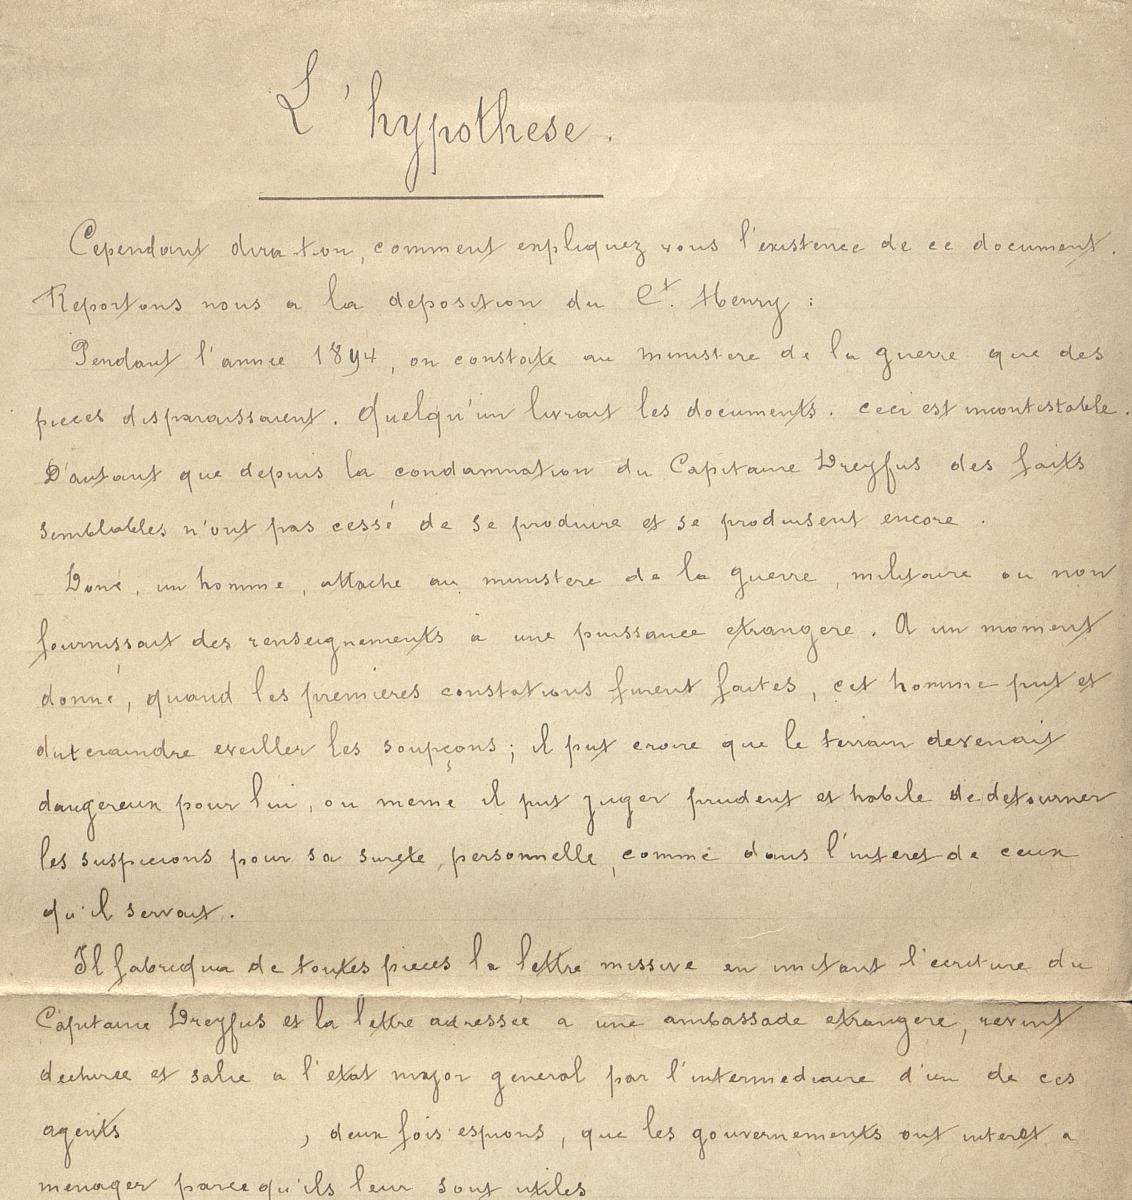 L'hypothese.
Cependant dira-t-on, comment expliquez vous l'existence de ce document.
Reportons nous a la deposition du Ct. Henry :
Pendant l'année 1894, on constate au ministere de la guerre que des
pieces disparaissaient. Quelqu'un livrait les documents. Ceci est incontestable.
D'autant que depuis la condamnation du Capitaine Dreyfus des faits
semblables n'ont pas cessé de se produire et se produisent encore.
Donc, un homme, attaché au ministere de la guerre, militaire ou non
fournissait des renseignements a une puissance etrangere. A un moment
donné, quand les premieres constations furent faites, cet homme put et
dut craindre eveiller les soupçons ; il put croire que le terrain devenait
dangereux pour lui, ou meme il put juger prudent et habile de detourner
les suspicions pour sa sureté, personnelle, comme dans l'interet de ceux
qu'il servait.
Il fabriqua de toutes pieces la lettre missive en imitant l'ecriture du
Capitaine Dreyfus et la lettre adressée a une ambassade etrangere, revint
dechirée et salie a l'etat major general par l'intermediaire d'un de ces
agents , deux fois espions, que les gouvernements ont interet a
menager parce qu'ils leur sont utiles